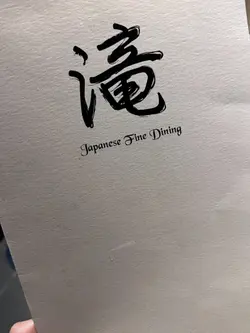 滝
Japanese Fine Dining